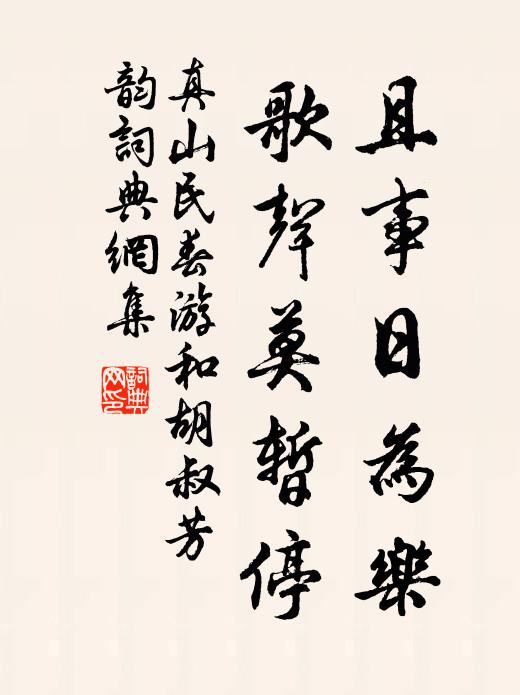 且事日為樂
歌聲莫暫停
真山民春游和胡叔芳
韵詞典網集
詞典網印